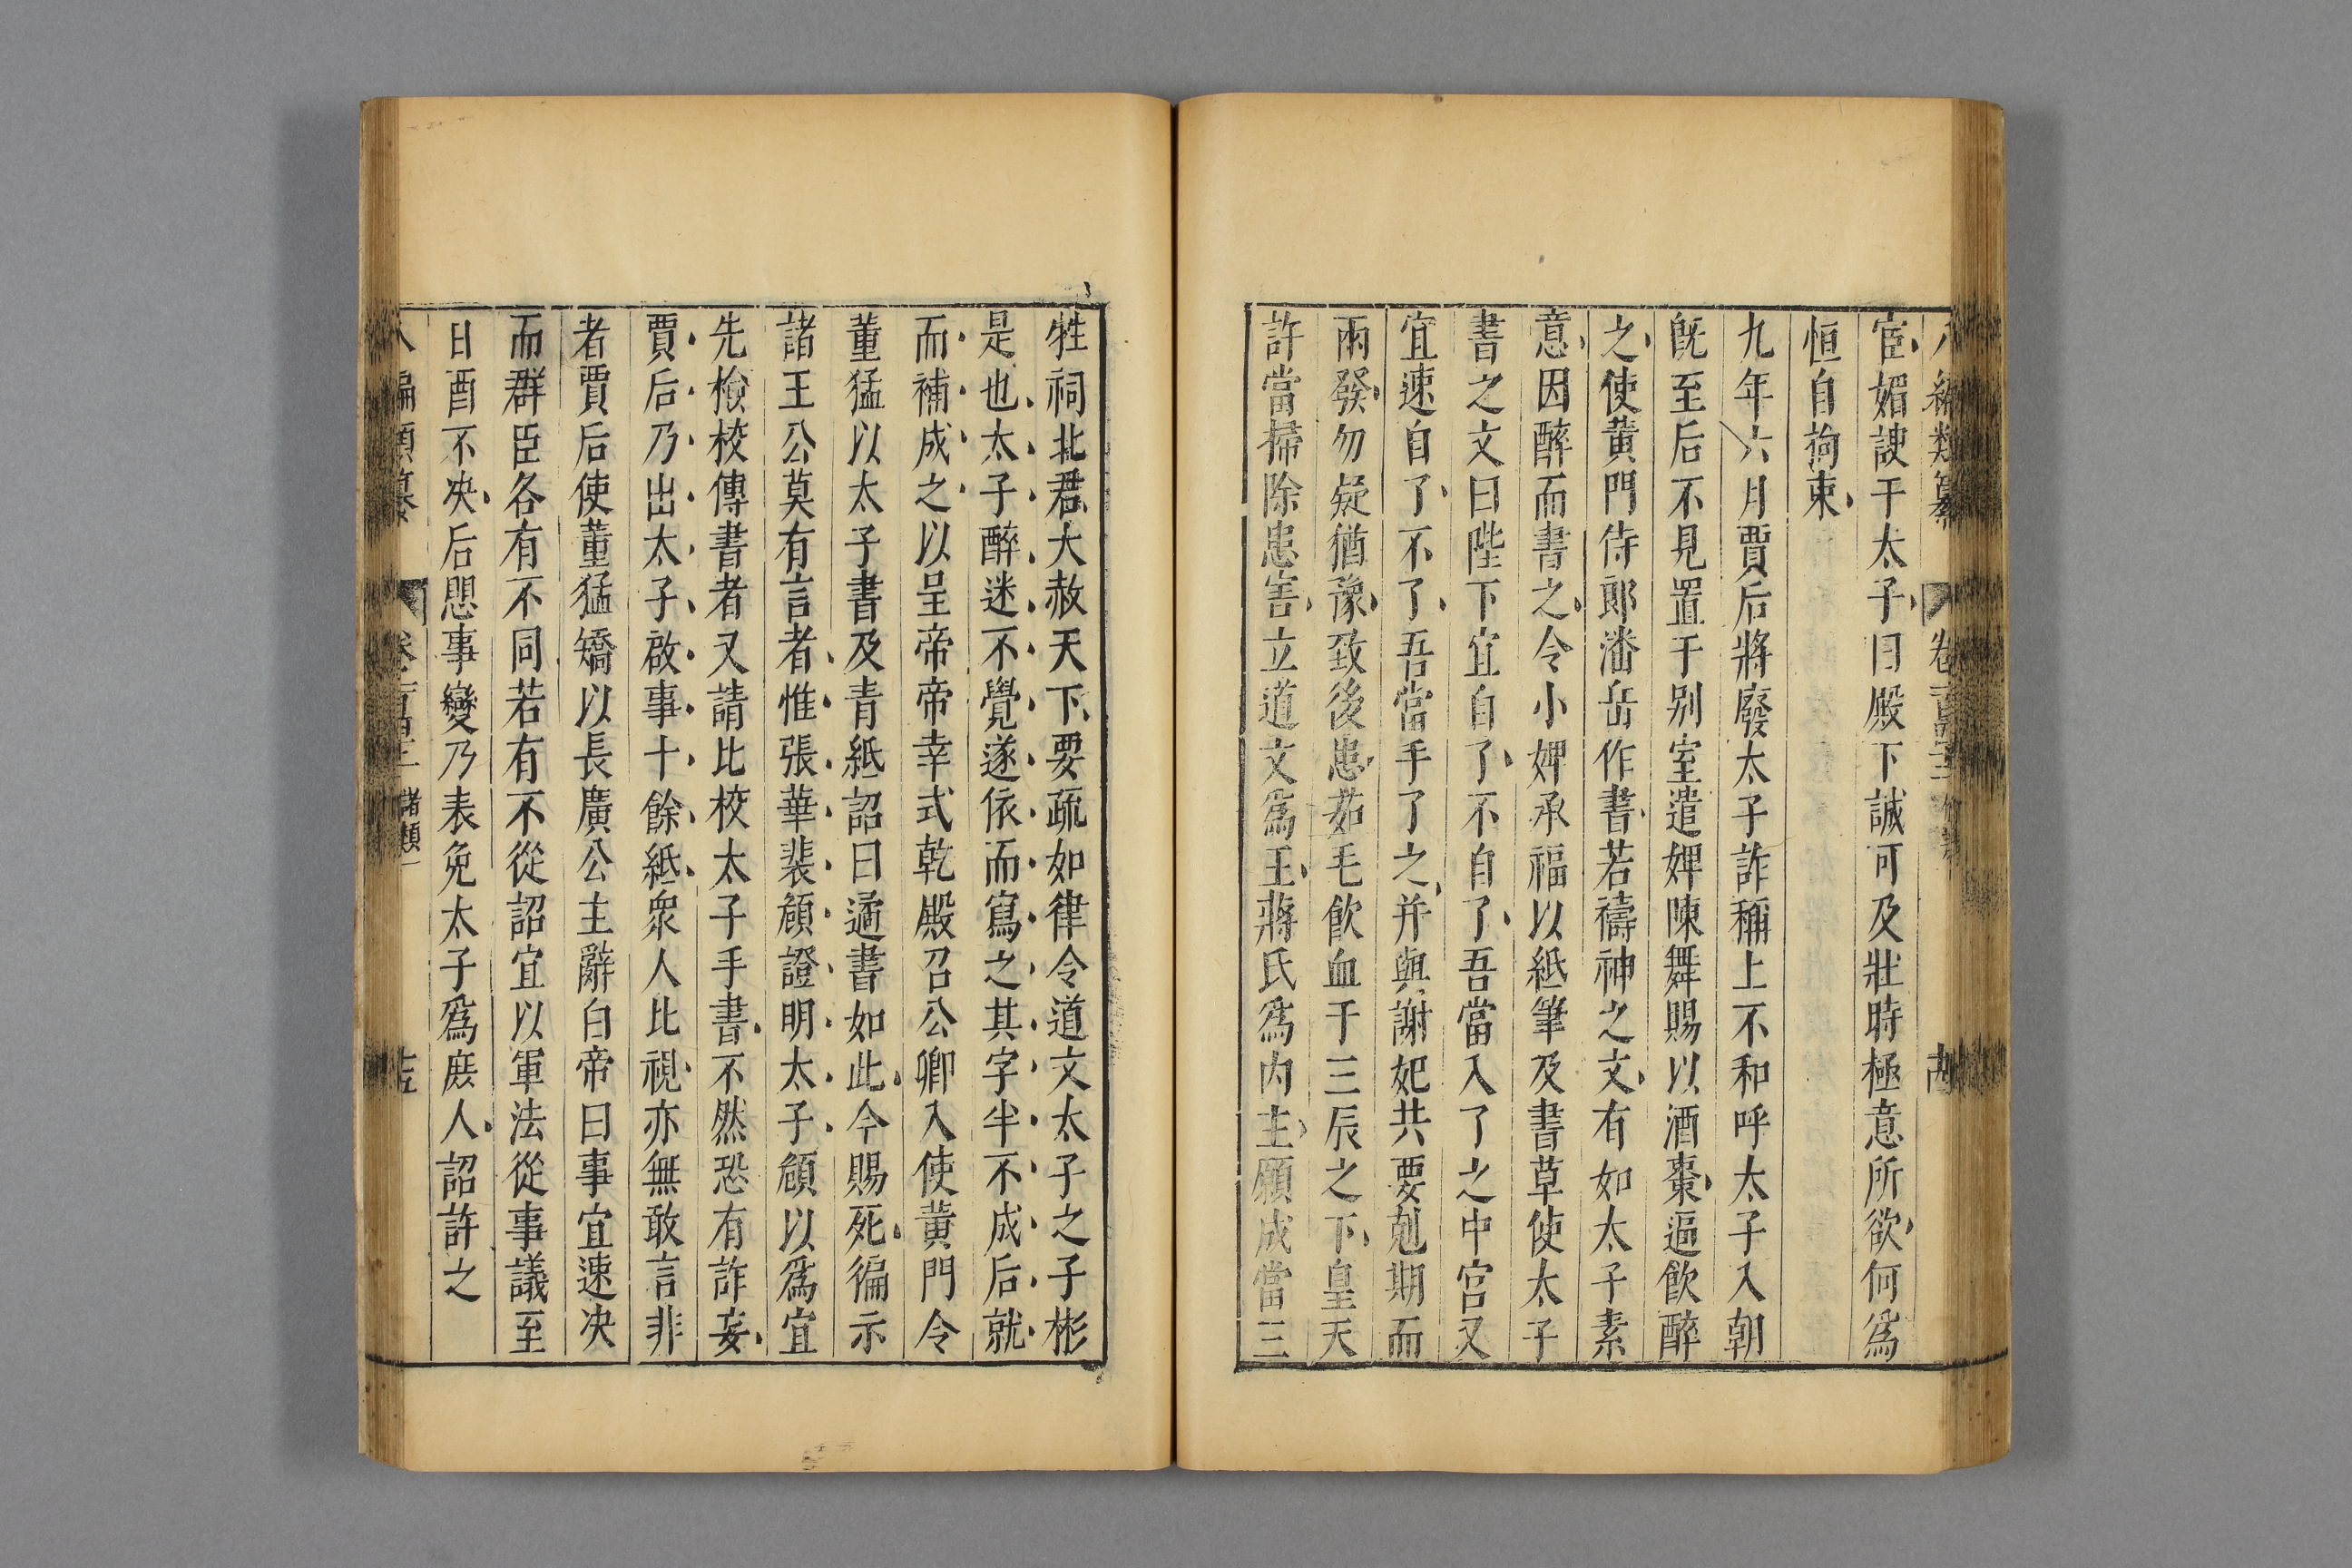 八編類纂 卷一百四十三
宦媚諛于太子曰殿下誠可及壯時極意所欲何爲
恒自拘束
九年六月賈后將廢太子詐稱上不和呼太子入朝
旣至后不見置于別室遣婢陳舞賜以酒棗逼飲醉
之使黃門侍郞潘岳作書若禱神之文有如太子素
意因醉而書之令小婢承福以紙筆及書草使太子
書之文曰陛下宜自了不自了吾當入了之中宮又
宜速自了不了吾當手了之并與謝妃共要剋期而
兩發勿疑猶豫致後患茹毛飲血于三辰之下皇天
許當掃除患害立道文爲王蔣氏爲内主願成當三
牲祠北君大赦天下要疏如律令道文太子之子彬
是也太子醉迷不覺遂依而寫之其字半不成后就
而補成之以呈帝帝幸式乾殿召公卿入使黃門令
董猛以太子書及青紙詔曰遹書如此今賜死徧示
諸王公莫有言者惟張華裴頠證明太子頠以爲宜
先檢校傳書者又請比校太子手書不然恐有詐妄
賈后乃出太子啟事十餘紙衆人比視亦無敢言非
者賈后使董猛矯以長廣公主辭白帝曰事宜速决
而群臣各有不同若有不從詔宜以軍法從事議至
日酉不决后愳事變乃表免太子爲庻人詔許之
八編類纂 卷一百四十三 諸類一 十五